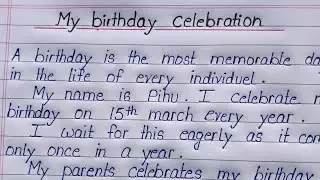 My birthday celebration
A birthday is the most memorable da
in the life of every individuel.
My name is Pihu. I celebrate m
birthday on 15th march every year.
I wait for this eagerly as it com
only once in a year.
My parents celebrates my birthday